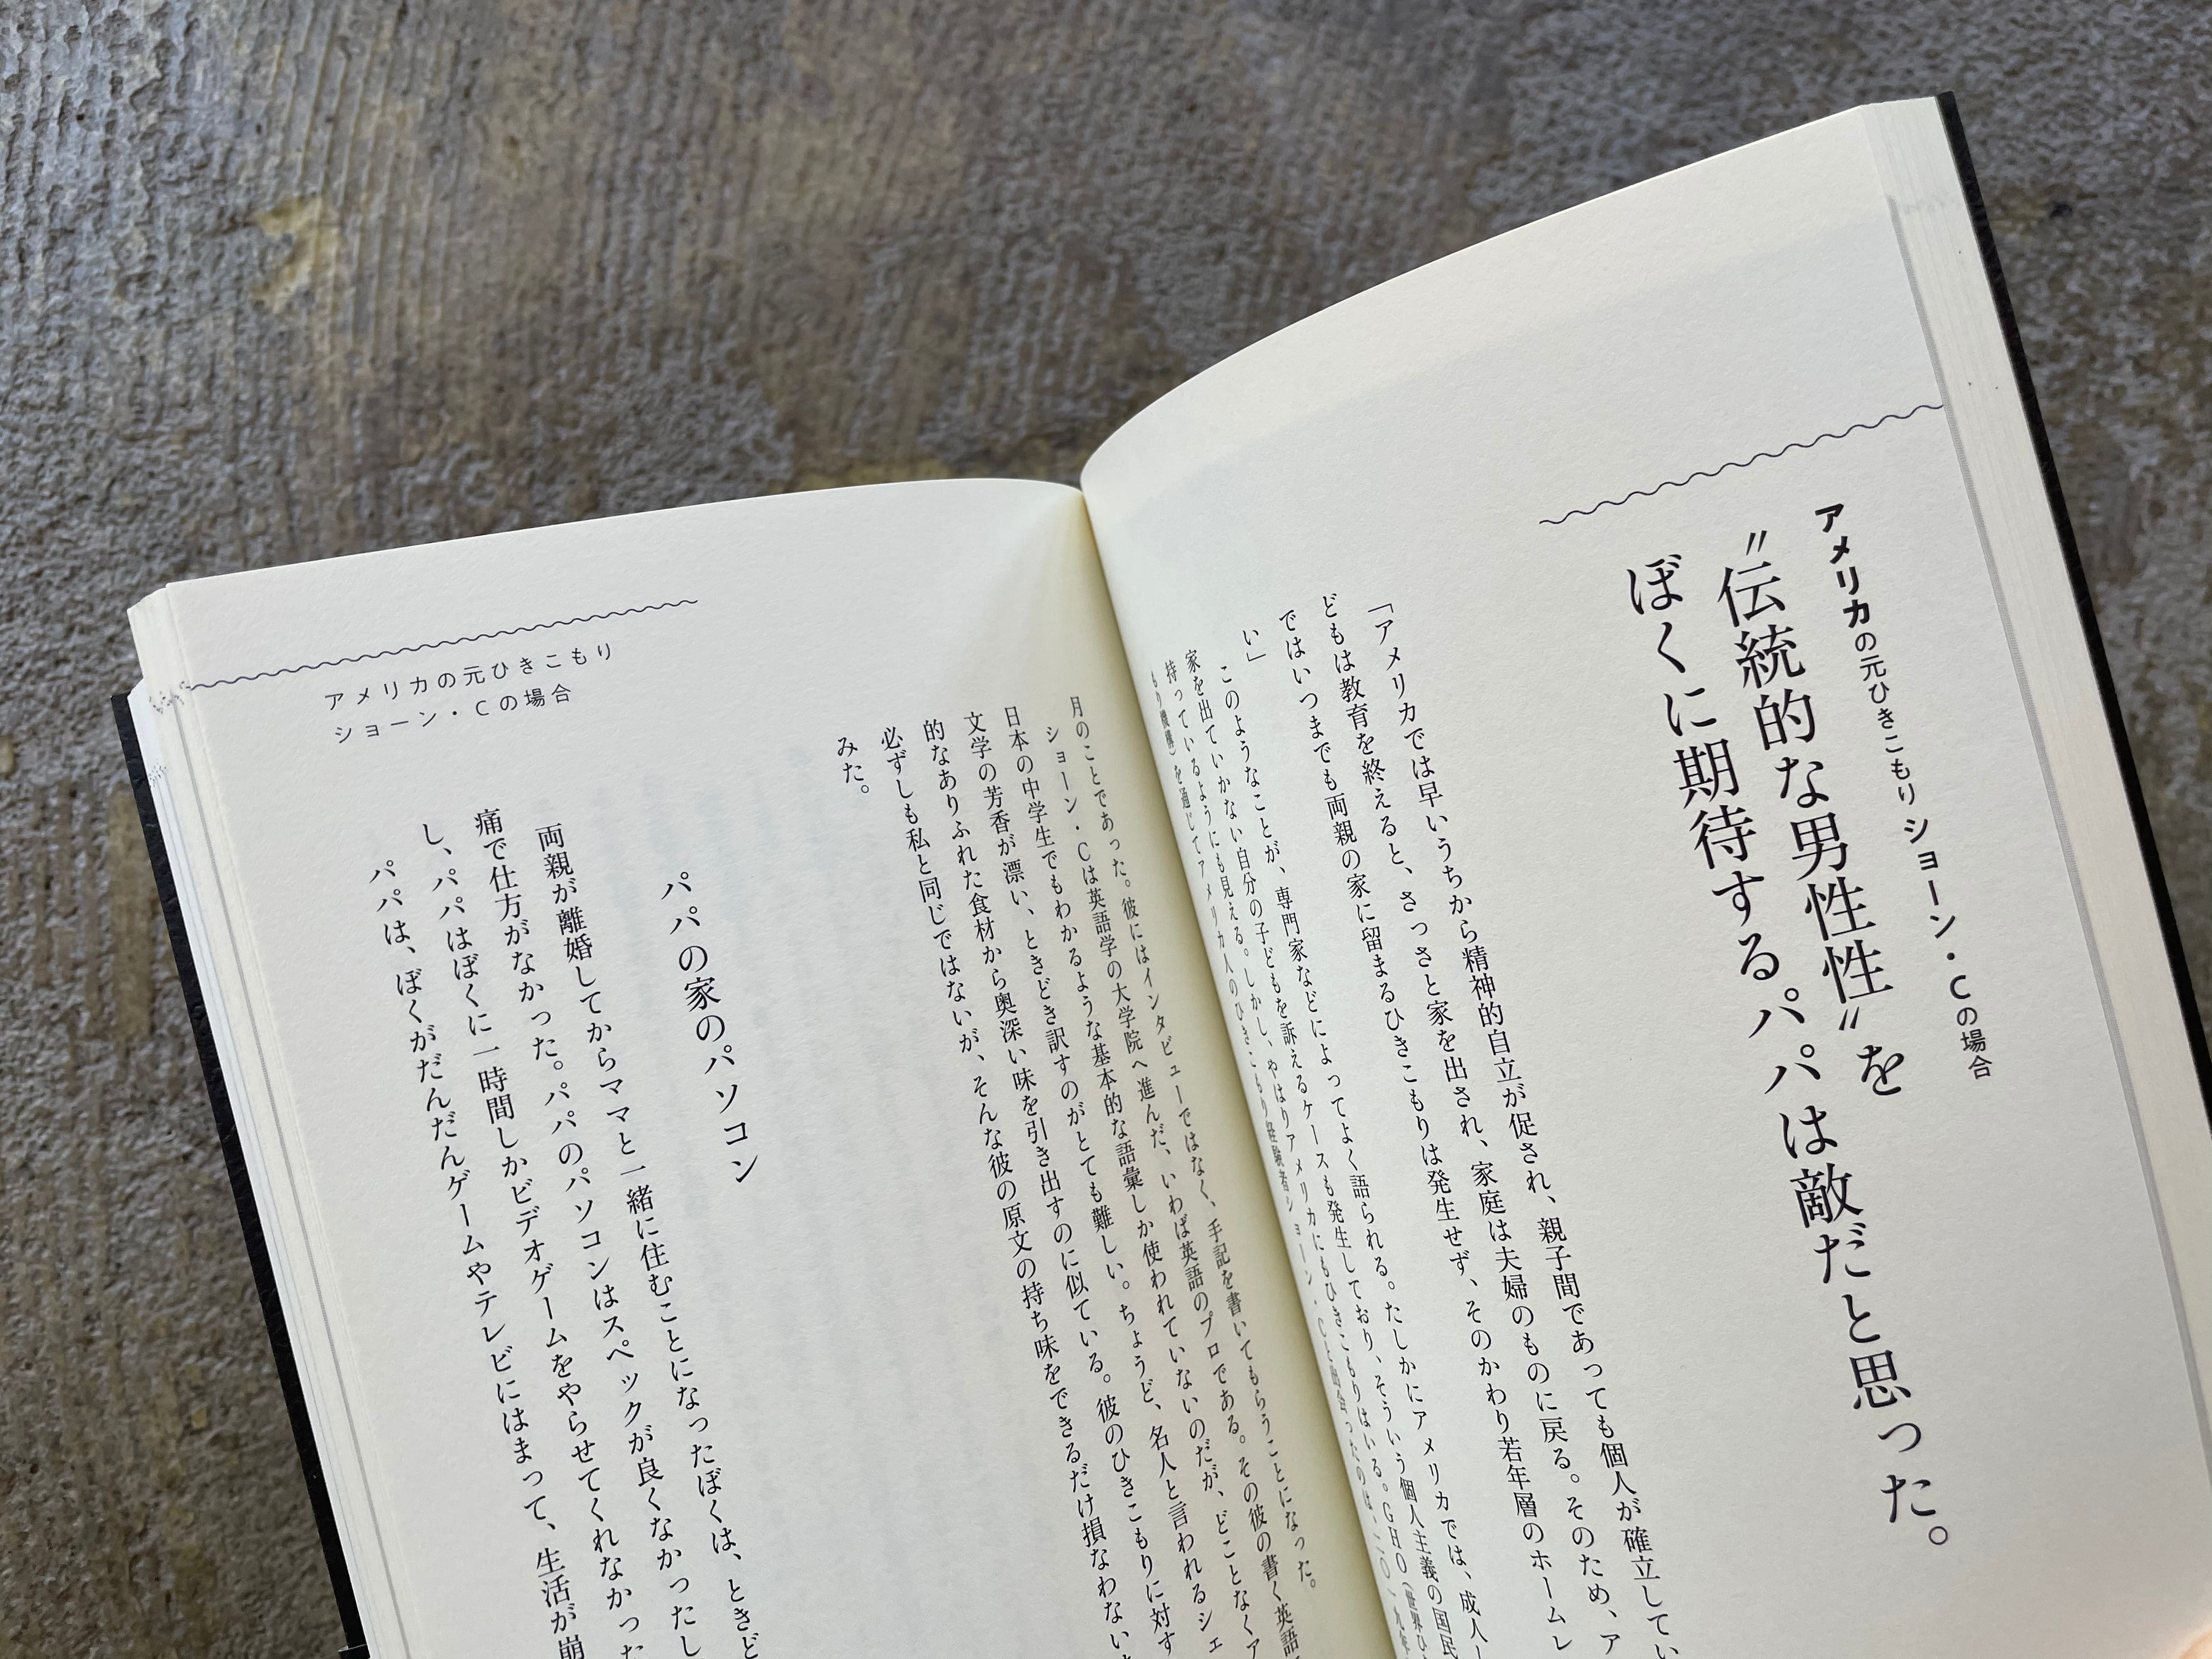 アメリカの元ひきこもり ショーン・Cの場合
〝伝統的な男性性〟を
ぼくに期待するパパは敵だと思った。
「アメリカでは早いうちから精神的自立が促され、親子間であっても個人が確立してい
どもは教育を終えると、さっさと家を出され、家庭は夫婦のものに戻る。そのため、ア
ではいつまでも両親の家に留まるひきこもりは発生せず、そのかわり若年層のホームレ
い」
このようなことが、専門家などによってよく語られる。たしかにアメリカでは、成人し
家を出ていかない自分の子どもを訴えるケースも発生しており、そういう個人主義の国民
持っているようにも見える。しかし、やはりアメリカにもひきこもりはいる。GHO(世界ひ
もり機構)を通じてアメリカ人のひきこもり経験者ショーン・Cと
月のことであった。彼にはインタビューではなく、手記を書いてもらうことになった。
ショーン・Cは英語学の大学院へ進んだ、いわば英語のプロである。その彼の書く英語
日本の中学生でもわかるような基本的な語彙しか使われていないのだが、どことなくア
文学の芳香が漂い、ときどき訳すのがとても難しい。ちょうど、名人と言われるシェ
的なありふれた食材から奥深い味を引き出すのに似ている。彼のひきこもりに対す
必ずしも私と同じではないが、そんな彼の原文の持ち味をできるだけ損なわない
みた。
アメリカの元ひきこもり
ショーン・Cの場合
パパの家のパソコン
両親が離婚してからママと一緒に住むことになったぼくは、ときど
痛で仕方がなかった。パパのパソコンはスペックが良くなかったし
し、パパはぼくに一時間しかビデオゲームをやらせてくれなかった
パパは、ぼくがだんだんゲームやテレビにはまって、生活が崩